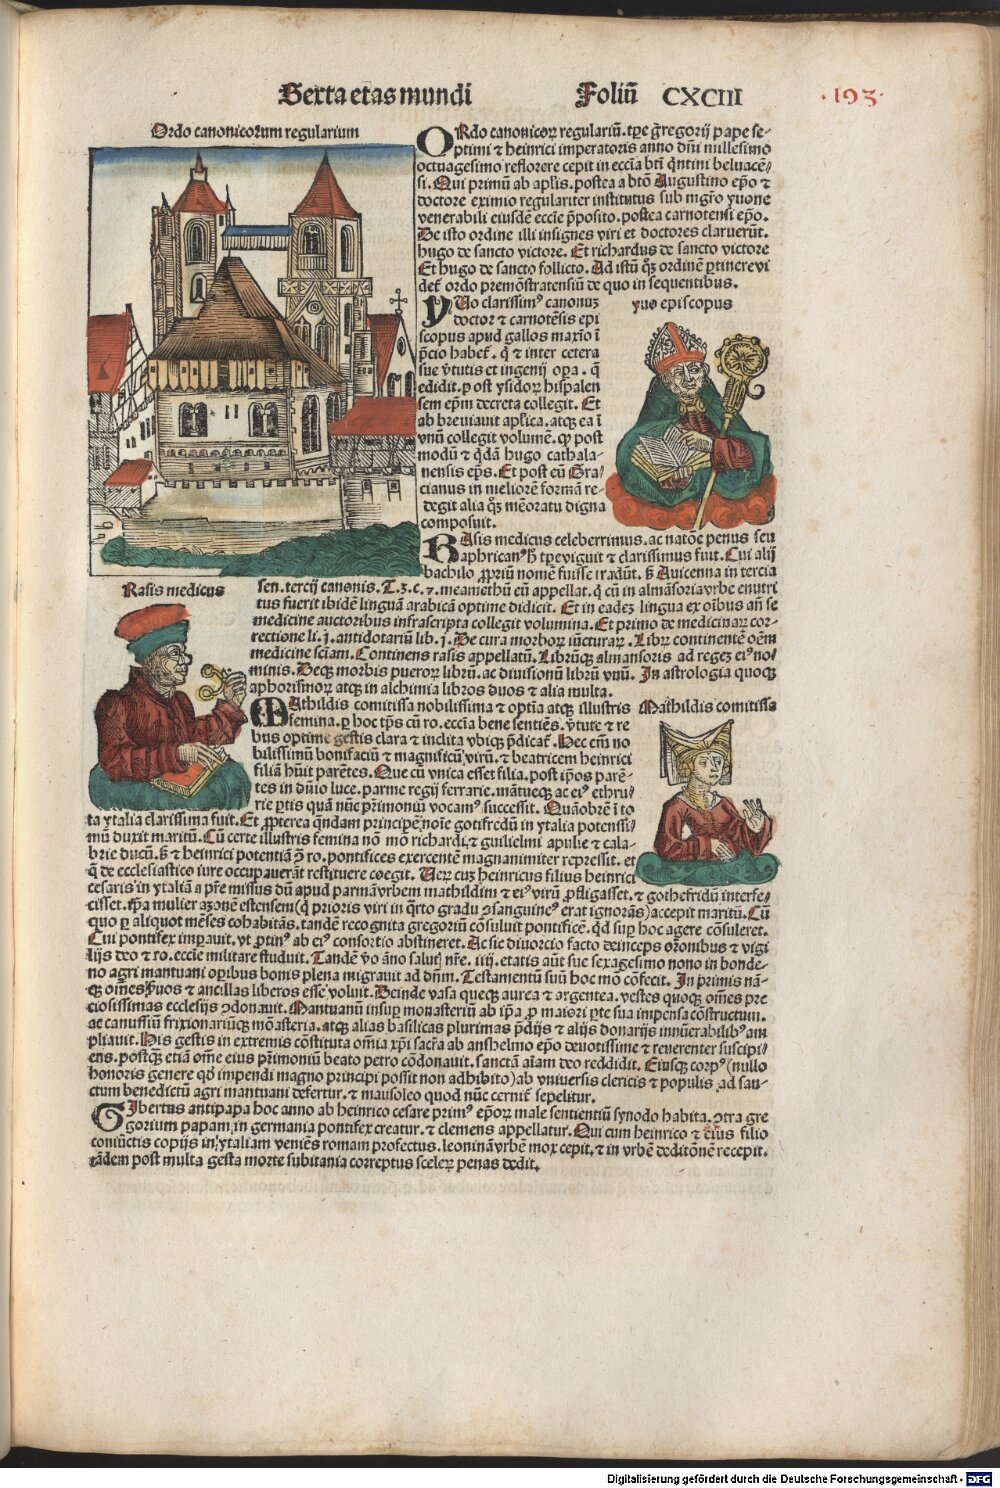 Sexta etas mundi Foliũ CXCIII
·193·
Ordo canonicorum regularium
ORdo canonicoꝝ regulariũ. tp̃e gregorij pape se⸗
ptimi ⁊ heinrici imperatoris anno dñi millesimo
octuagesimo reflorere cepit in eccĩa btĩ q̃ntini beluacẽ⸗
si. Qui primũ ab apl̃is. postea a btõ Augustino ep̃o ⁊
doctore eximio regulariter institutus sub mgr̃o yuone
venerabili eiusdẽ eccĩe p̃posito. postea carnotensi ep̃o.
De isto ordine illi insignes viri et doctores claruerũt.
hugo de sancto victore. Et richardus de sancto victore
Et hugo de sancto follicto. Ad istũ q̃ȝ ordinẽ ꝑtinere vi
det̃ ordo premõstratensiũ de quo in sequentibus.
yuo episcopus
YUo clarissimꝰ canonuȝ
doctor ⁊ carnotẽsis epi
scopus apud gallos maxīo ĩ
p̃cio habet̃. q̃ ⁊ inter cetera
sue v̓tutis et ingenij oꝑa. q̃
edidit. ꝑ ost ysidoꝝ hispalen
sem ep̃m decreta collegit. Et
ab breviauit apl̃ica. atqȝ ea ĩ
vnũ collegit volumẽ. qꝫ post
modũ ⁊ q̃dã hugo cathala⸗
nensis ep̃s. Et post eũ Gra⸗
cianus in meliorẽ formã re⸗
degit alia q̃ȝ mẽoratu digna
composuit.
RAsis medicus celeberrimus. ac natõe penus seu
aphricanꝰ h̃ tp̃e viguit ⁊ clarissimus fuit. Cui alij
bachilo ꝓpriũ nomẽ fuisse tradũt. s̃ Auicenna in tercia
Rasis medicus
sen. tercij canonis. T.3.c.7. meamethũ eũ appellat. q̃ cũ in almãsoria vrbe enutri
tus fuerit ibidẽ linguã arabicã optime didicit. Et in eadeȝ lingua ex oĩbus añ se
medicine auctoribus infrascripta collegit volumina. Et primo de medicinaꝝ cor⸗
rectione li. j. antidotariũ lib. j. De cura morboꝝ iũcturaꝝ. Libꝝ continentẽ oẽm
medicine sciam. Continens rasis appellatũ. Librũqȝ almansoris ad regeȝ eiꝰ no⸗
minis. Deqȝ morbis pueroꝝ librũ. ac diuisionũ librũ vnũ. In astrologia quoqȝ
aphorismoꝝ atqȝ in alchimia libros duos ⁊ alia multa.
Mathildis comitissa
MAthildis comitissa nobilissima ⁊ optĩa atqȝ illustris
femina. ꝑ hoc tp̃s cũ ro. eccĩa bene sentiẽs. v̓tute ⁊ re
bus optime gestis clara ⁊ inclita vbiqȝ p̃dicat̃. Hec em̃ no
bilissimũ bonifaciũ ⁊ magnificũ virũ. ⁊ beatricem heinrici
filiã hũit parẽtes. Que cũ vnica esset filia. post ip̃os parẽ⸗
tes in dñio luce. parme regij ferrarie. mãtueqȝ ac eiꝰ ethru⸗
rie ꝑtis quã nũc p̃rimoniũ vocamꝰ successit. Quãobrẽ ĩ to
ta ytalia clarissima fuit. Et ꝓpterea q̃ndam principẽ noĩe gotifredũ in ytalia potenssi⸗
mũ duxit maritũ. Cũ certe illustris femina nõ mõ richardi. ⁊ guilielmi apulie ⁊ cala⸗
brie ducũ. s̃ ⁊ heinrici potentiã ꝯ̃ ro. pontifices exercentẽ magnanimiter repressit. et
q̃ de ecclesiastico iure occupauerãt restituere coegit. Ueꝝ cuȝ heinricus filius heinrici
cesaris in ytaliã a p̃re missus dũ apud parmã vrbem mathildim ⁊ eiꝰ virũ ꝓfligasset. ⁊ gothefridũ interfe⸗
cisset. ip̃a mulier azonẽ estensem (q̃ prioris viri in q̃rto gradu ꝯsanguineꝰ erat ignorãs) accepit maritũ. Cũ
quo ꝑ aliquot mẽses cohabitãs. tandẽ recognita gregoriũ cõsuluit pontificẽ. q̃d suꝑ hoc agere cõsuleret.
Cui pontifex imꝑauit. vt ꝓtinꝰ ab eiꝰ consortio abstineret. Ac sic diuorcio facto deinceps orõnibus ⁊ vigi
lijs deo ⁊ ro. eccĩe militare studuit. Tandẽ v̓o ãno salutꝭ nr̃e. iiij. etatis aũt sue sexagesimo nono in bonde⸗
no agri mantuani oꝑibus bonis plena migrauit ad dñm. Testamentũ suũ hoc mõ cõfecit. In primis nã⸗
qȝ oẽs suos ⁊ ancillas liberos esse voluit. Deinde vasa queqȝ aurea ⁊ argentea. vestes quoqȝ oẽs pre
ciosissimas ecclesijs ꝯdonauit. Mantuanũ insuꝑ monasteriũ ab ip̃a ꝓ maiori ꝑte sua impensa cõstructum.
ac canussiũ frixionariũqȝ mõasteria. atqȝ alias basilicas plurimas p̃dijs ⁊ alijs donarijs innũerabilibꝰ am
pliauit. His gestis in extremis cõstituta oĩa xp̃i sacr̃a ab anshelmo ep̃o deuotissime ⁊ reuerenter suscipi⸗
ens. postqȝ etiã oẽm eius p̃rimoniũ beato petro cõdonauit. sanctã aĩam deo reddidit. Eiusqȝ corpꝰ (nullo
honoris genere qõ impendi magno principi possit non adhibito) ab vniuersis clericis ⁊ populis ad san⸗
ctum benedictũ agri mantuani defertur. ⁊ mausoleo quod nũc cernit̃ sepelitur.
GIbertus antipapa hoc anno ab heinrico cesare primꝰ ep̃oꝝ male sentientiũ synodo habita. ꝯtra gre
gorium papam. in germania pontifex creatur. ⁊ clemens appellatur. Qui cum heinrico ⁊ eius filio
coniũctis copijs in ytaliam veniẽs romam profectus. leoninã vrbẽ mox cepit. ⁊ in vrbẽ deditõnẽ recepit.
tãdem post multa gesta morte subitania correptus sceleꝝ penas dedit.
Digitalisierung gefördert durch die Deutsche Forschungsgemeinschaft - DFG